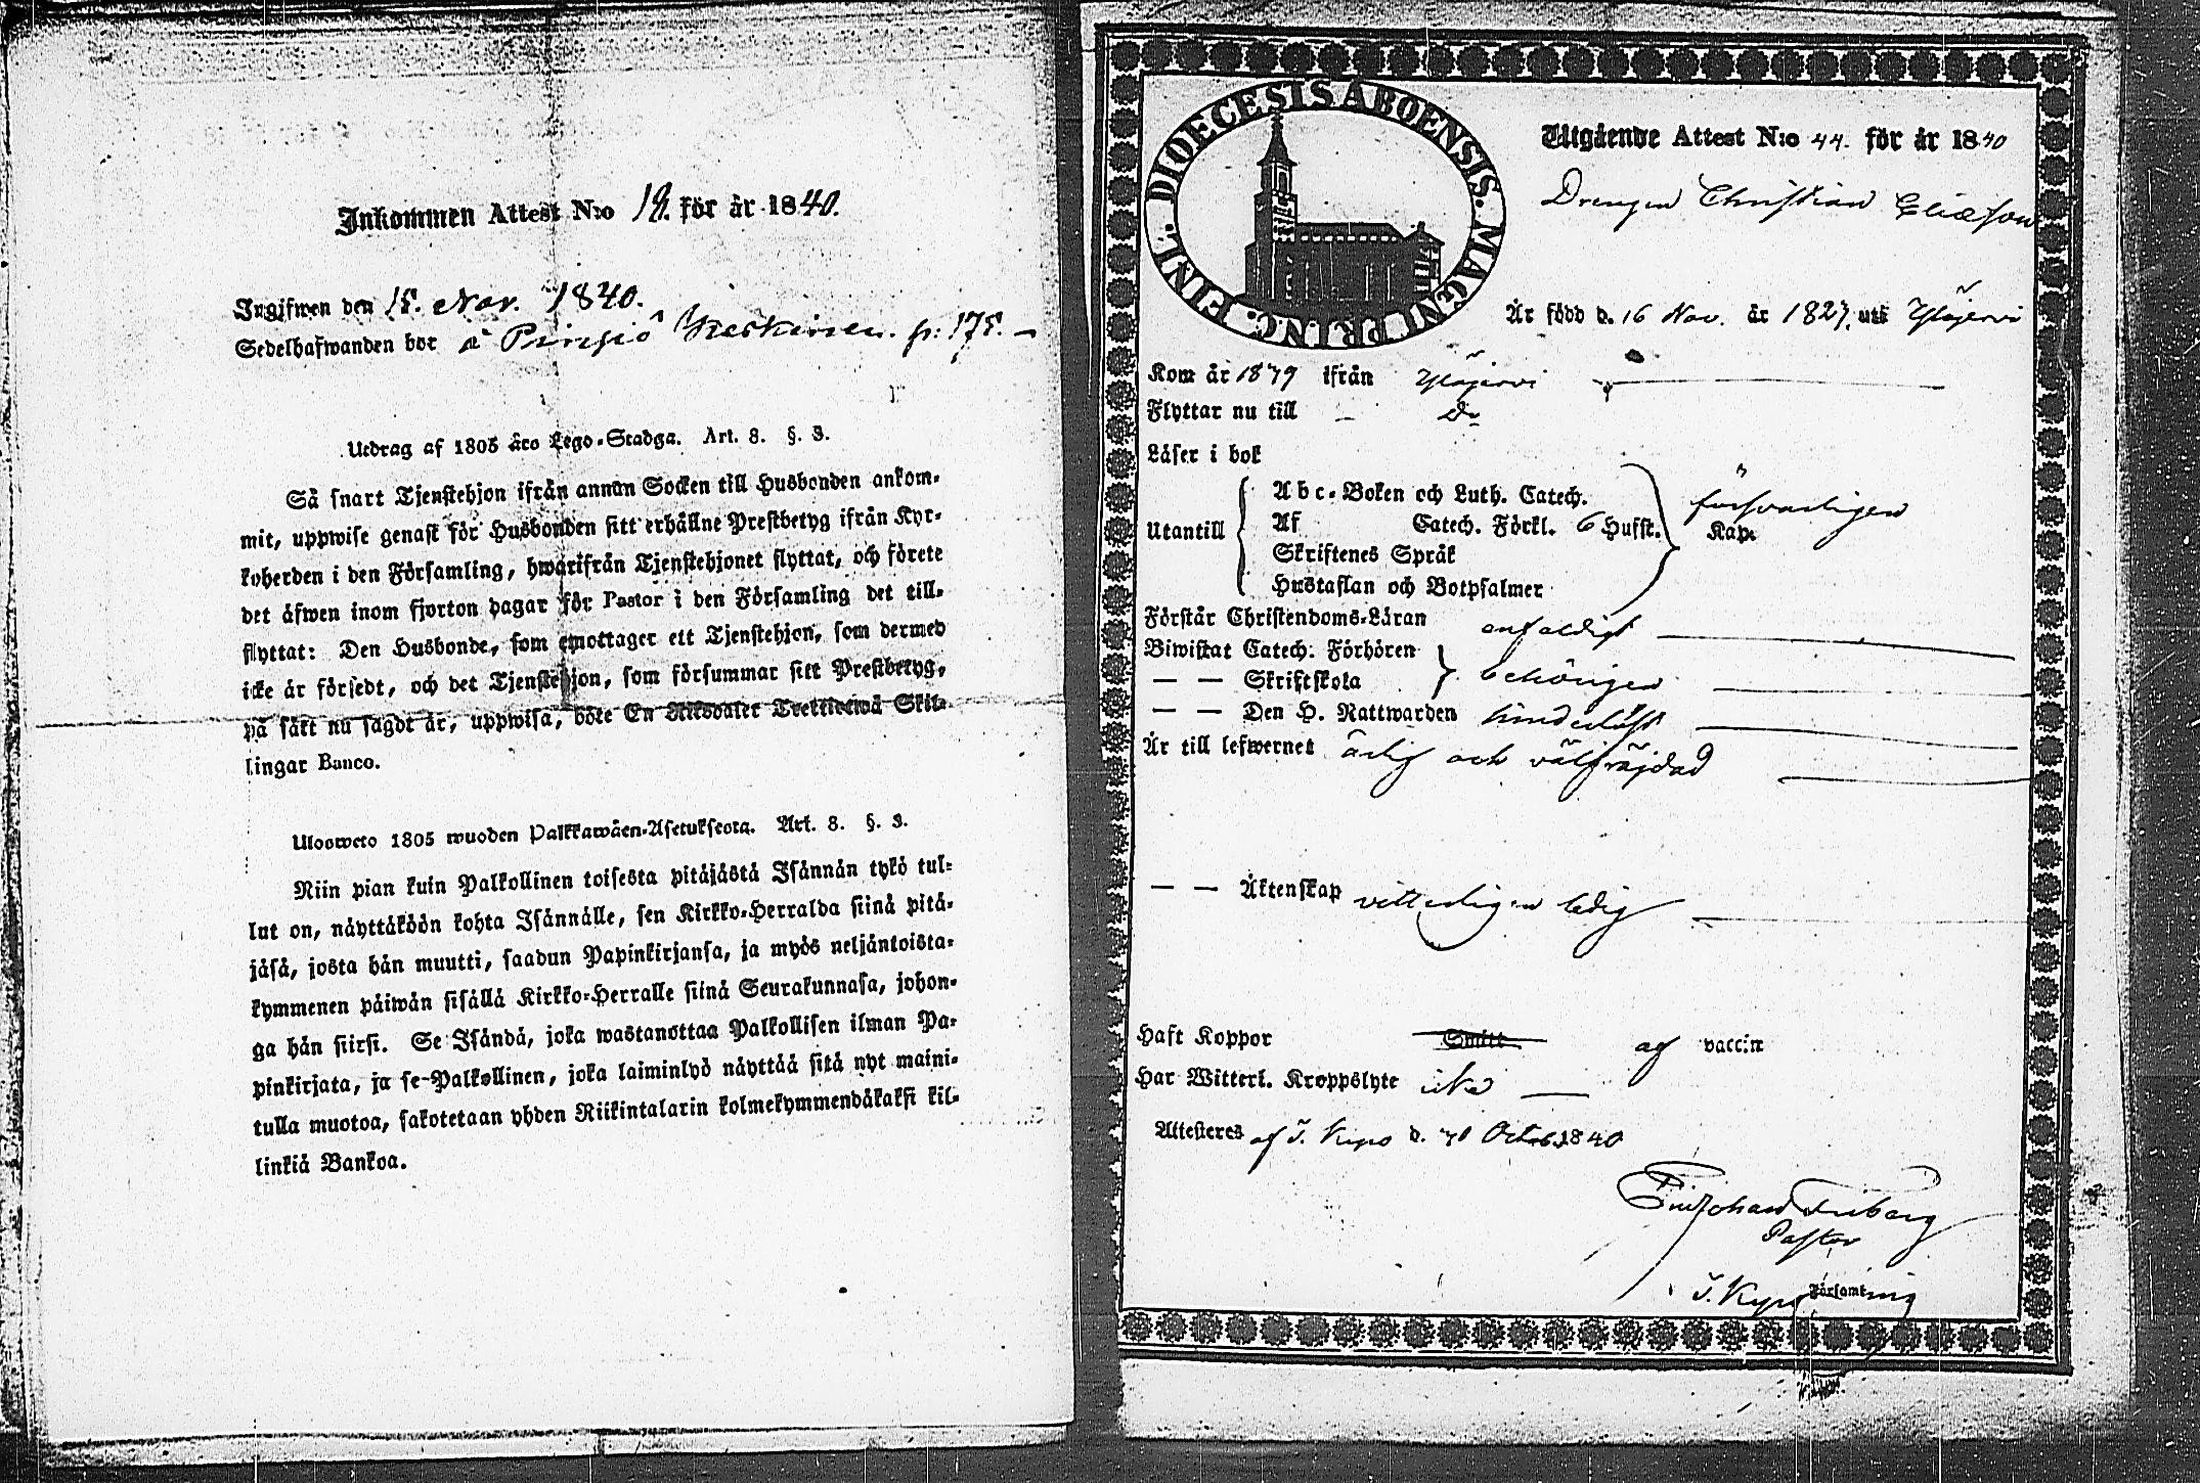 Inkommen Attest N:o 19. för år 1840.
Ingifwen den 15. Nov. 1840.
Sedelhafwanden bor à Pinsiö Keskinen. p: 175. —
Utdrag af 1805 års Lego-Stadga. Art. 8. §. 3.
Så snart Tjenstehjon ifrån annan Socken till Husbonden ankom-
mit, uppwise genast för Husbonden sitt erhållne Prestbetyg ifrån Kyr-
koherden i den Församling, hwarifrån Tjenstehjonet flyttat, och förete
det äfwen inom fjorton dagar för Pastor i den Församling det till-
flyttat: Den Husbonde, som emottager ett Tjenstehjon, som dermed
icke är försedt, och det Tjenstehjon, som försummar sitt Prestbetyg,
på sätt nu sagdt är, uppwisa, böte En Riksdaler Trettiotwå Skil-
lingar Banco.
Ulosweto 1805 wuoden Palkkawäen-Asetuksesta. Art. 8. §. 3.
Niin pian kuin Palkollinen toisesta pitäjästä Isännän tykö tul-
lut on, näyttäköön kohta Isännälle, sen Kirkko-Herralda siinä pitä-
jäsä, josta hän muutti, saadun Papinkirjansa, ja myös neljäntoista-
kymmenen päiwän sisällä Kirkko-Herralle siinä Seurakunnasa, johon-
ga hän siirsi. Se Isändä, joka wastanottaa Palkollisen ilman Pa-
pinkirjata, ja se Palkollinen, joka laiminlyö näyttää sitä nyt maini-
tulla muotoa, sakotetaan yhden Riikintalarin kolmekymmendäkaksi kil-
linkiä Bankoa.
DIOECESIS ABOENSIS. MAGNI PRINC. FINL.
Utgående Attest N:o 44. för år 1840
Drengen Christian Eliæson
Är född d. 16 Nov. år 1827. uti Ylöjervi
Kom år 1879 ifrån Ylöjervi
Flyttar nu till — Do
Läser i bok
Abc-Boken och Luth. Catech.
försvarligen
Utantill Af Catech. Förkl. 6 Hufst. Kap.
Skriftenes Språk
Hustaflan och Botpsalmer
Förstår Christendoms-Läran enfaldigt
Biwistat Catech. Förhören
— — Skriftskola behörigen
— — Den H. Nattwarden hinderlöst
Är till lefwernet ärlig och välfräjdad
— — Äktenskap vitterligen ledig
Haft Koppor Smitt af vaccin
Har Witterl. Kroppslyte icke
Attesteres af T. Kyro d. 30 Octob. 1840
Friberg
Pastor
T. Kyro Församling